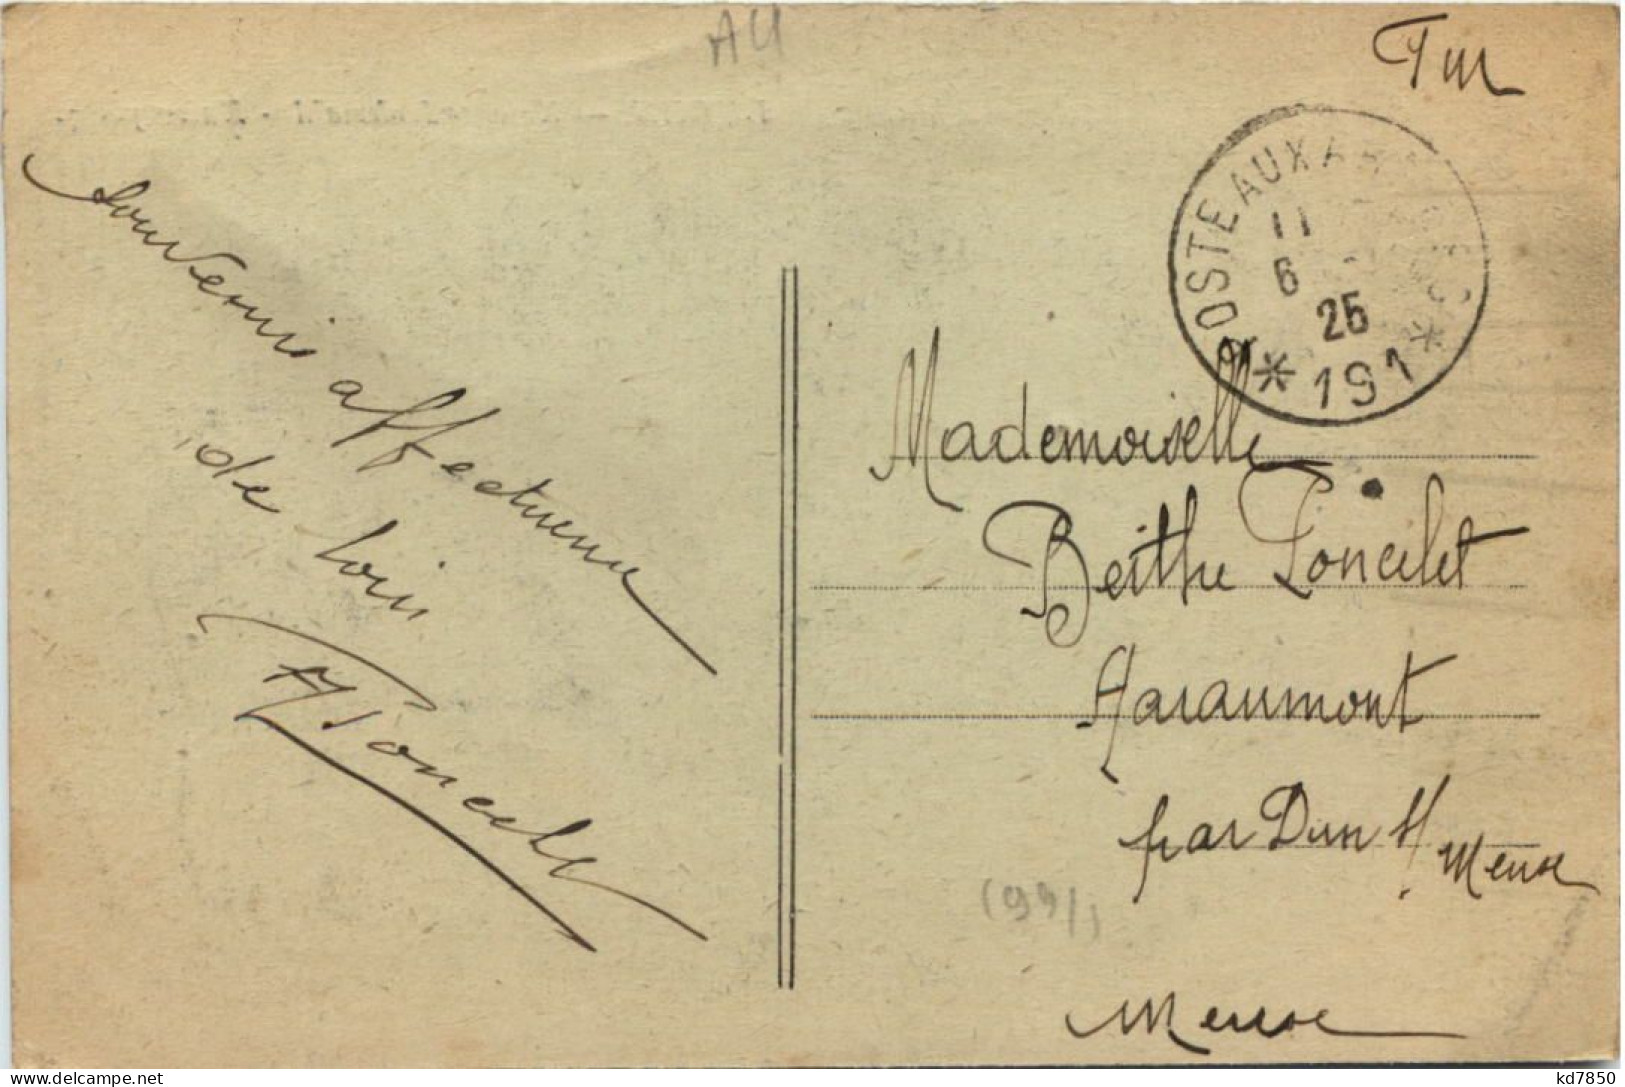 A4
FM
POSTE AUX ARMEES
11
6
25
* 191 *
Souvenir affectueux
de loin
A Poncelet
Mademoiselle
Berthe Poncelet
Haraumont
par Dun s/ Meuse
(99/)
Meuse
kd7850